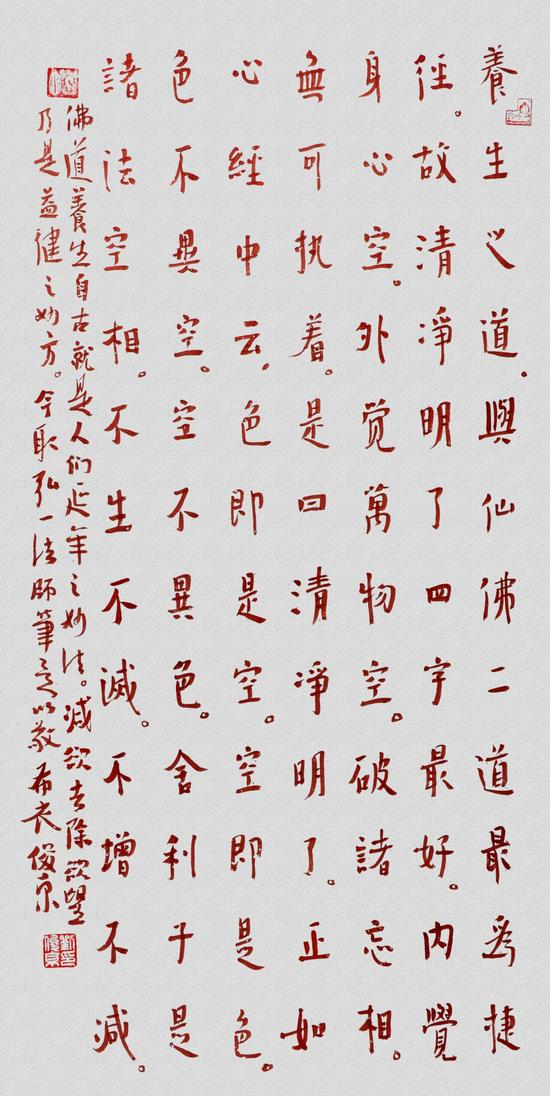 養生之道與仙佛二道最為捷
徑。故清淨明了四字最好。内覺
身心空。外觉萬物空。破諸忘相。
無可执着。是曰清淨明了。正如
心經中云。色即是空。空即是色。
色不異空。空不異色。舍利子是
諸法空相。不生不滅。不增不減。
佛道養生自古就是人们延年之妙法。减欲去除欲望
乃是益健之妙方。今取弘一法师筆意以敬希衣俊京